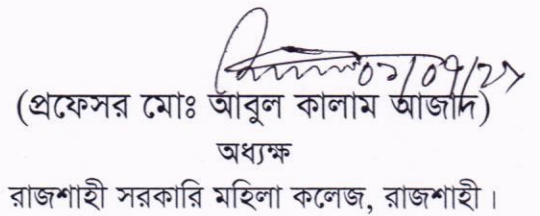 (প্রফেসর মোঃ আবুল কালাম আজাদ)
অধ্যক্ষ
রাজশাহী সরকারি মহিলা কলেজ, রাজশাহী।